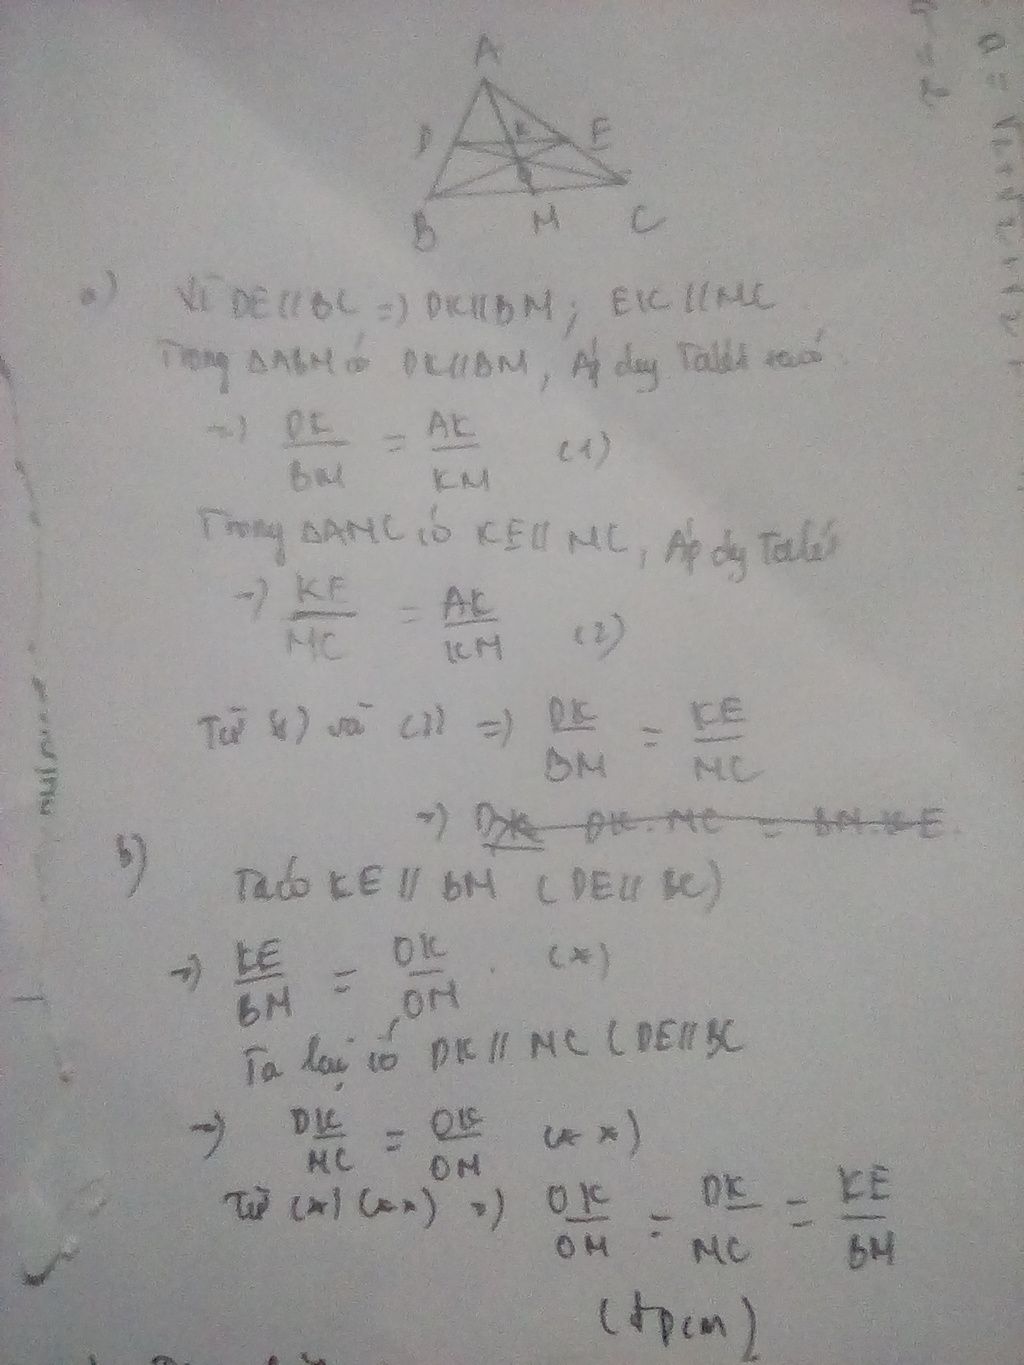 A
D K E
B M C
a) Vì DE//BC => DK//BM; EK//MC
Trong ΔABM có DK//BM, Áp dụng Talét ta có
=> DK/BM = AK/KM (1)
Trong ΔAMC có KE//MC, Áp dụng Talét
=> KE/MC = AK/KM (2)
Từ (1) và (2) => DK/BM = KE/MC
=> DK DK.MC = BM.KE
b)
Ta có KE//BM (DE//BC)
=> KE/BM = OK/OM. (*)
Ta lại có DK//MC (DE//BC
=> DK/MC = OK/OM (**)
Từ (*) (**) => OK/OM = DK/MC = KE/BM
(đpcm)